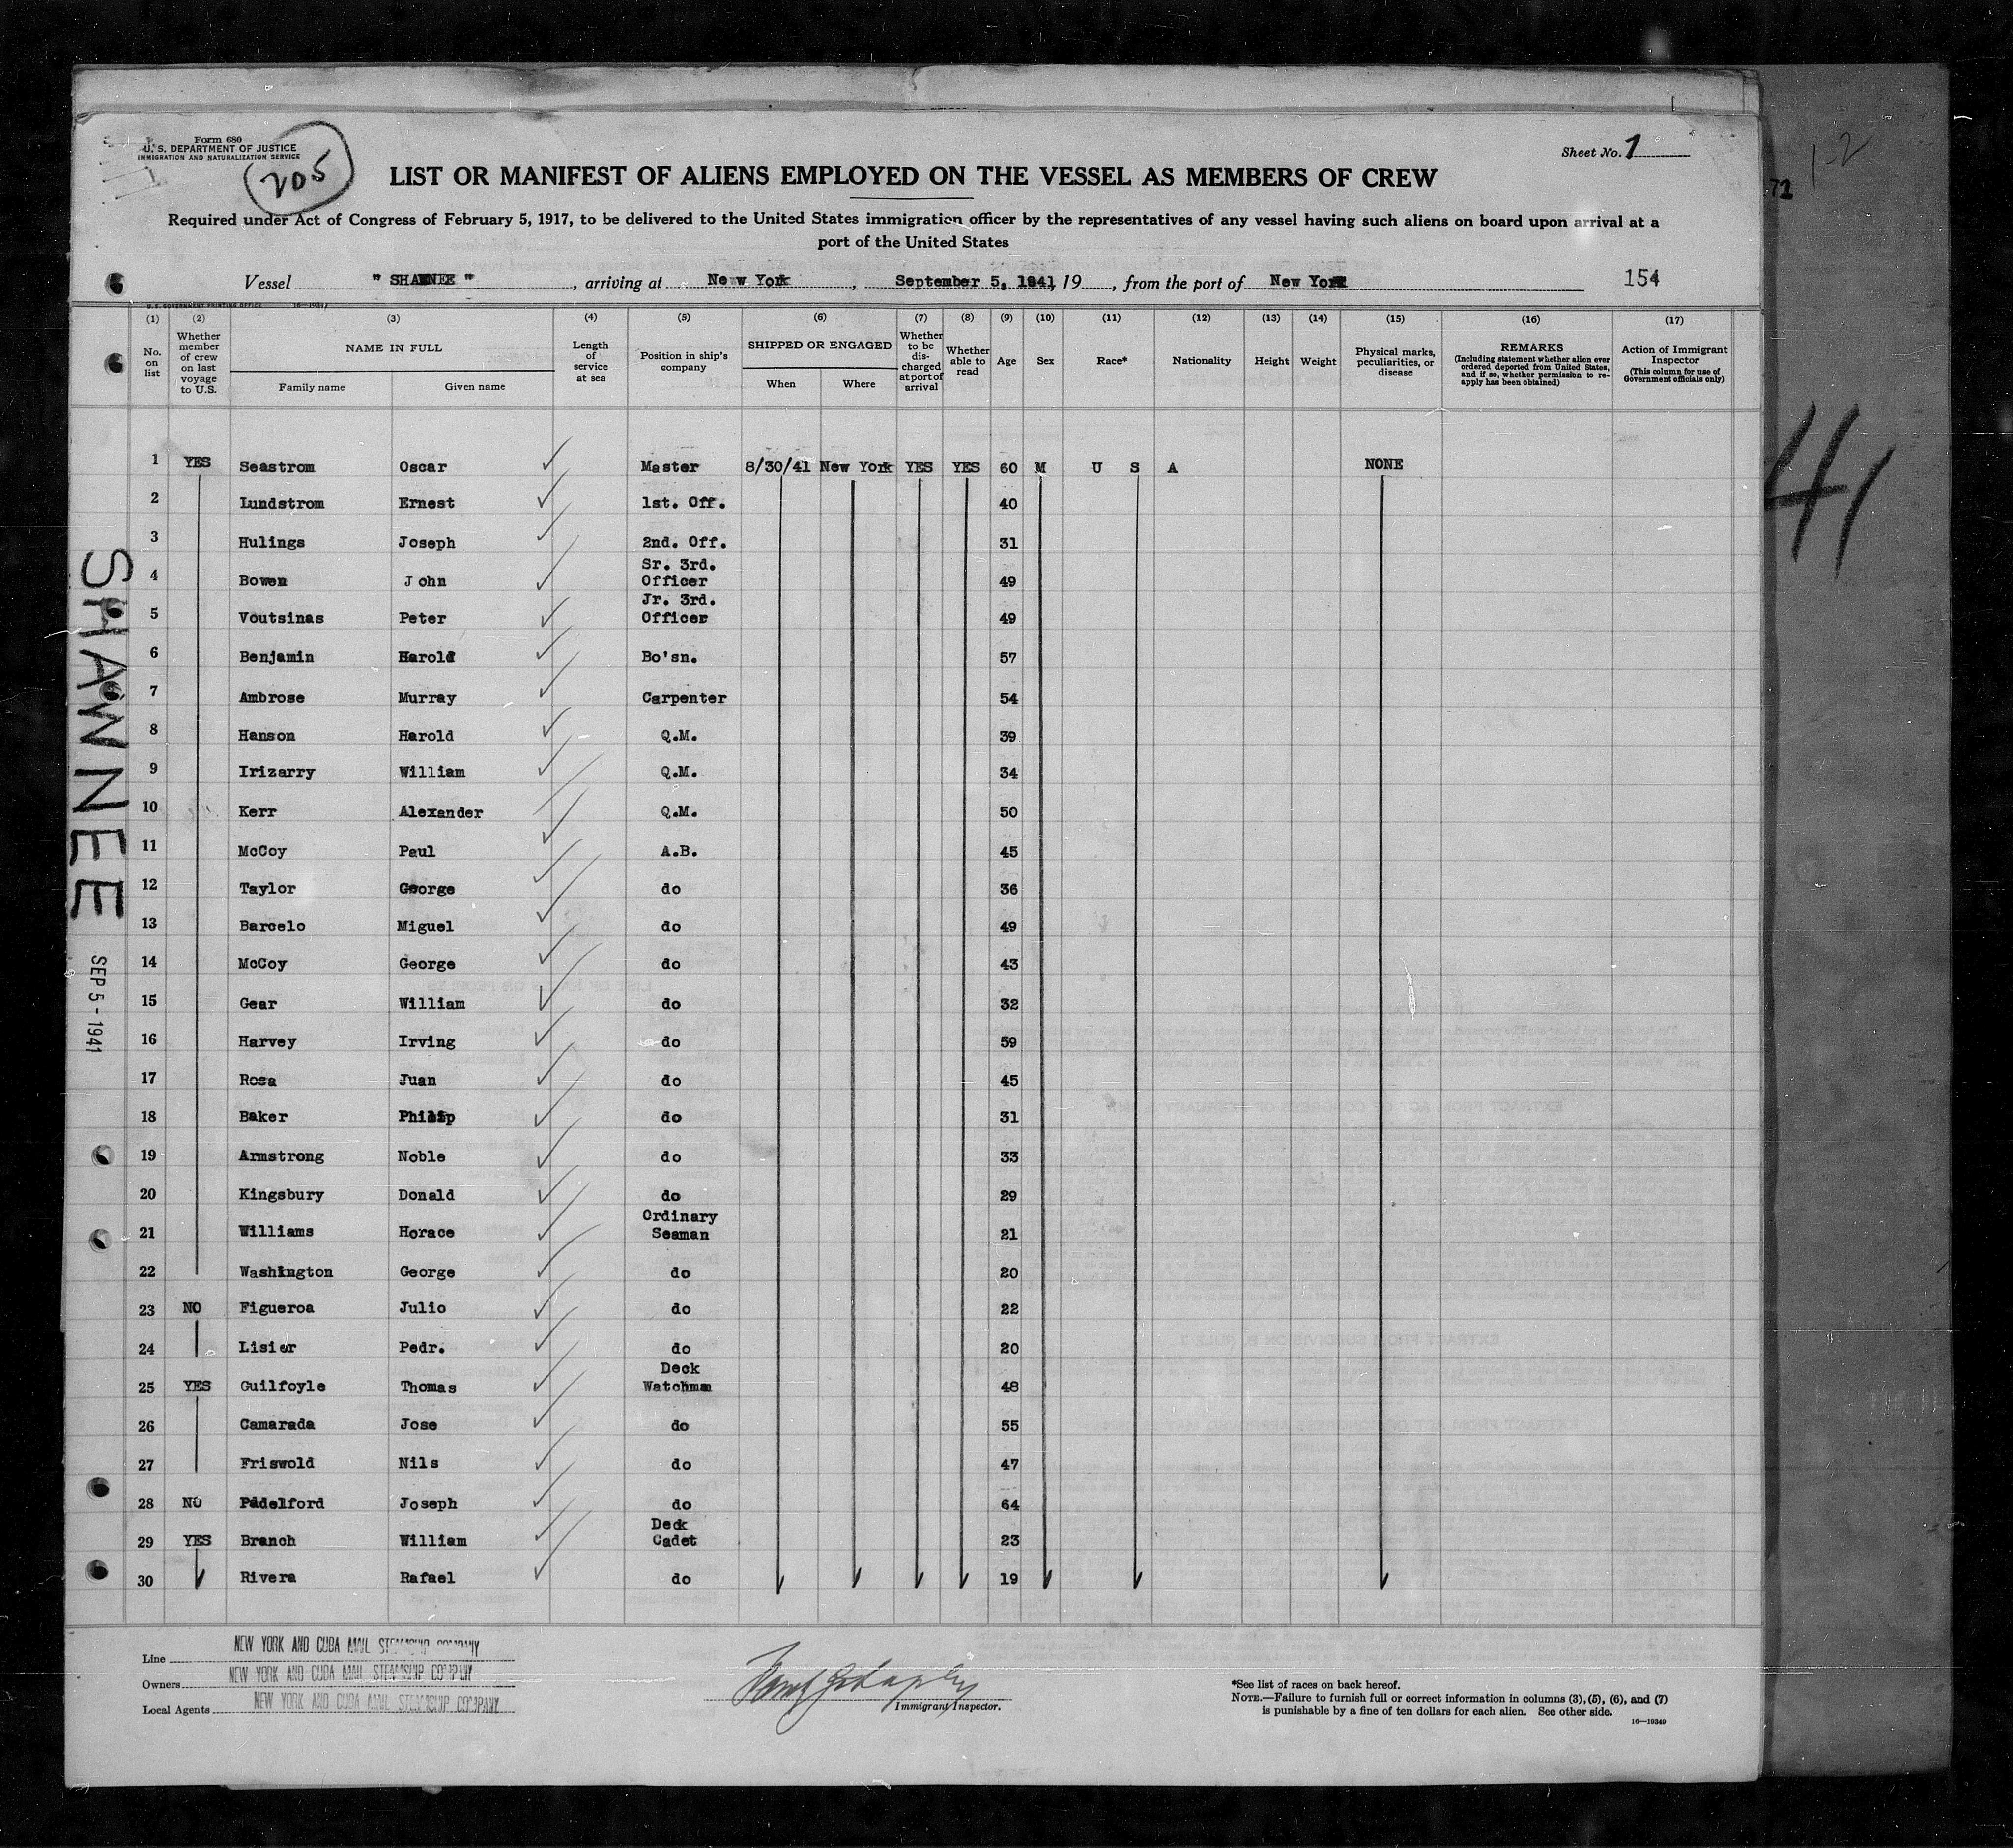 Form 680
U. S. DEPARTMENT OF JUSTICE
IMMIGRATION AND NATURALIZATION SERVICE
205
Sheet No. 1
LIST OR MANIFEST OF ALIENS EMPLOYED ON THE VESSEL AS MEMBERS OF CREW
Required under Act of Congress of February 5, 1917, to be delivered to the United States immigration officer by the representatives of any vessel having such aliens on board upon arrival at a
port of the United States
Vessel " SHAWNEE ", arriving at New York, September 5, 1941, 19, from the port of New York 154
U. S. GOVERNMENT PRINTING OFFICE 16—19349
(1) (2) (3) (4) (5) (6) (7) (8) (9) (10) (11) (12) (13) (14) (15) (16) (17)
No. on list
Whether member of crew on last voyage to U.S.
NAME IN FULL
Family name Given name
Length of service at sea
Position in ship's company
SHIPPED OR ENGAGED
When Where
Whether to be discharged at port of arrival
Whether able to read
Age
Sex
Race*
Nationality
Height
Weight
Physical marks, peculiarities, or disease
REMARKS
(Including statement whether alien ever ordered deported from United States, and if so, whether permission to re-apply has been obtained)
Action of Immigrant Inspector
(This column for use of Government officials only)
1 YES Seastrom Oscar Master 8/30/41 New York YES YES 60 M U S A NONE
2 Lundstrom Ernest 1st. Off. 40
3 Hulings Joseph 2nd. Off. 31
4 Bowen John Sr. 3rd. Officer 49
5 Voutsinas Peter Jr. 3rd. Officer 49
6 Benjamin Harold Bo'sn. 57
7 Ambrose Murray Carpenter 54
8 Hanson Harold Q.M. 39
9 Irizarry William Q.M. 34
10 Kerr Alexander Q.M. 50
11 McCoy Paul A.B. 45
12 Taylor George do 36
13 Barcelo Miguel do 49
14 McCoy George do 43
15 Gear William do 32
16 Harvey Irving do 59
17 Rosa Juan do 45
18 Baker Philip do 31
19 Armstrong Noble do 33
20 Kingsbury Donald do 29
21 Williams Horace Ordinary Seaman 21
22 Washington George do 20
23 NO Figueroa Julio do 22
24 Lisier Pedr. do 20
25 YES Guilfoyle Thomas Deck Watchman 48
26 Camarada Jose do 55
27 Friswold Nils do 47
28 NO Padelford Joseph do 64
29 YES Branch William Deck Cadet 23
30 Rivera Rafael do 19
SHAWNEE
SEP 5 - 1941
71
1-2
41
Line NEW YORK AND CUBA MAIL STEAMSHIP COMPANY
Owners NEW YORK AND CUBA MAIL STEAMSHIP COMPANY
Local Agents NEW YORK AND CUBA MAIL STEAMSHIP COMPANY
Immigrant Inspector.
*See list of races on back hereof.
NOTE.—Failure to furnish full or correct information in columns (3), (5), (6), and (7)
is punishable by a fine of ten dollars for each alien. See other side.
16—19349